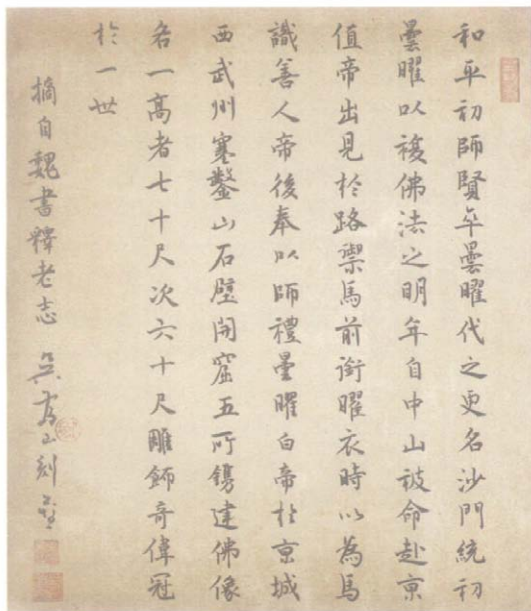 和平初師賢卒曇曜代之更名沙門統初
曇曜以複佛法之明年自中山被命赴京
值帝出見於路禦馬前銜曜衣時以為馬
識善人帝後奉以師禮曇曜白帝於京城
西武州塞鑿山石壁開窟五所鐫建佛像
各一高者七十尺次六十尺雕飾奇偉冠
於一世
摘自魏書釋老志 吳為山刻